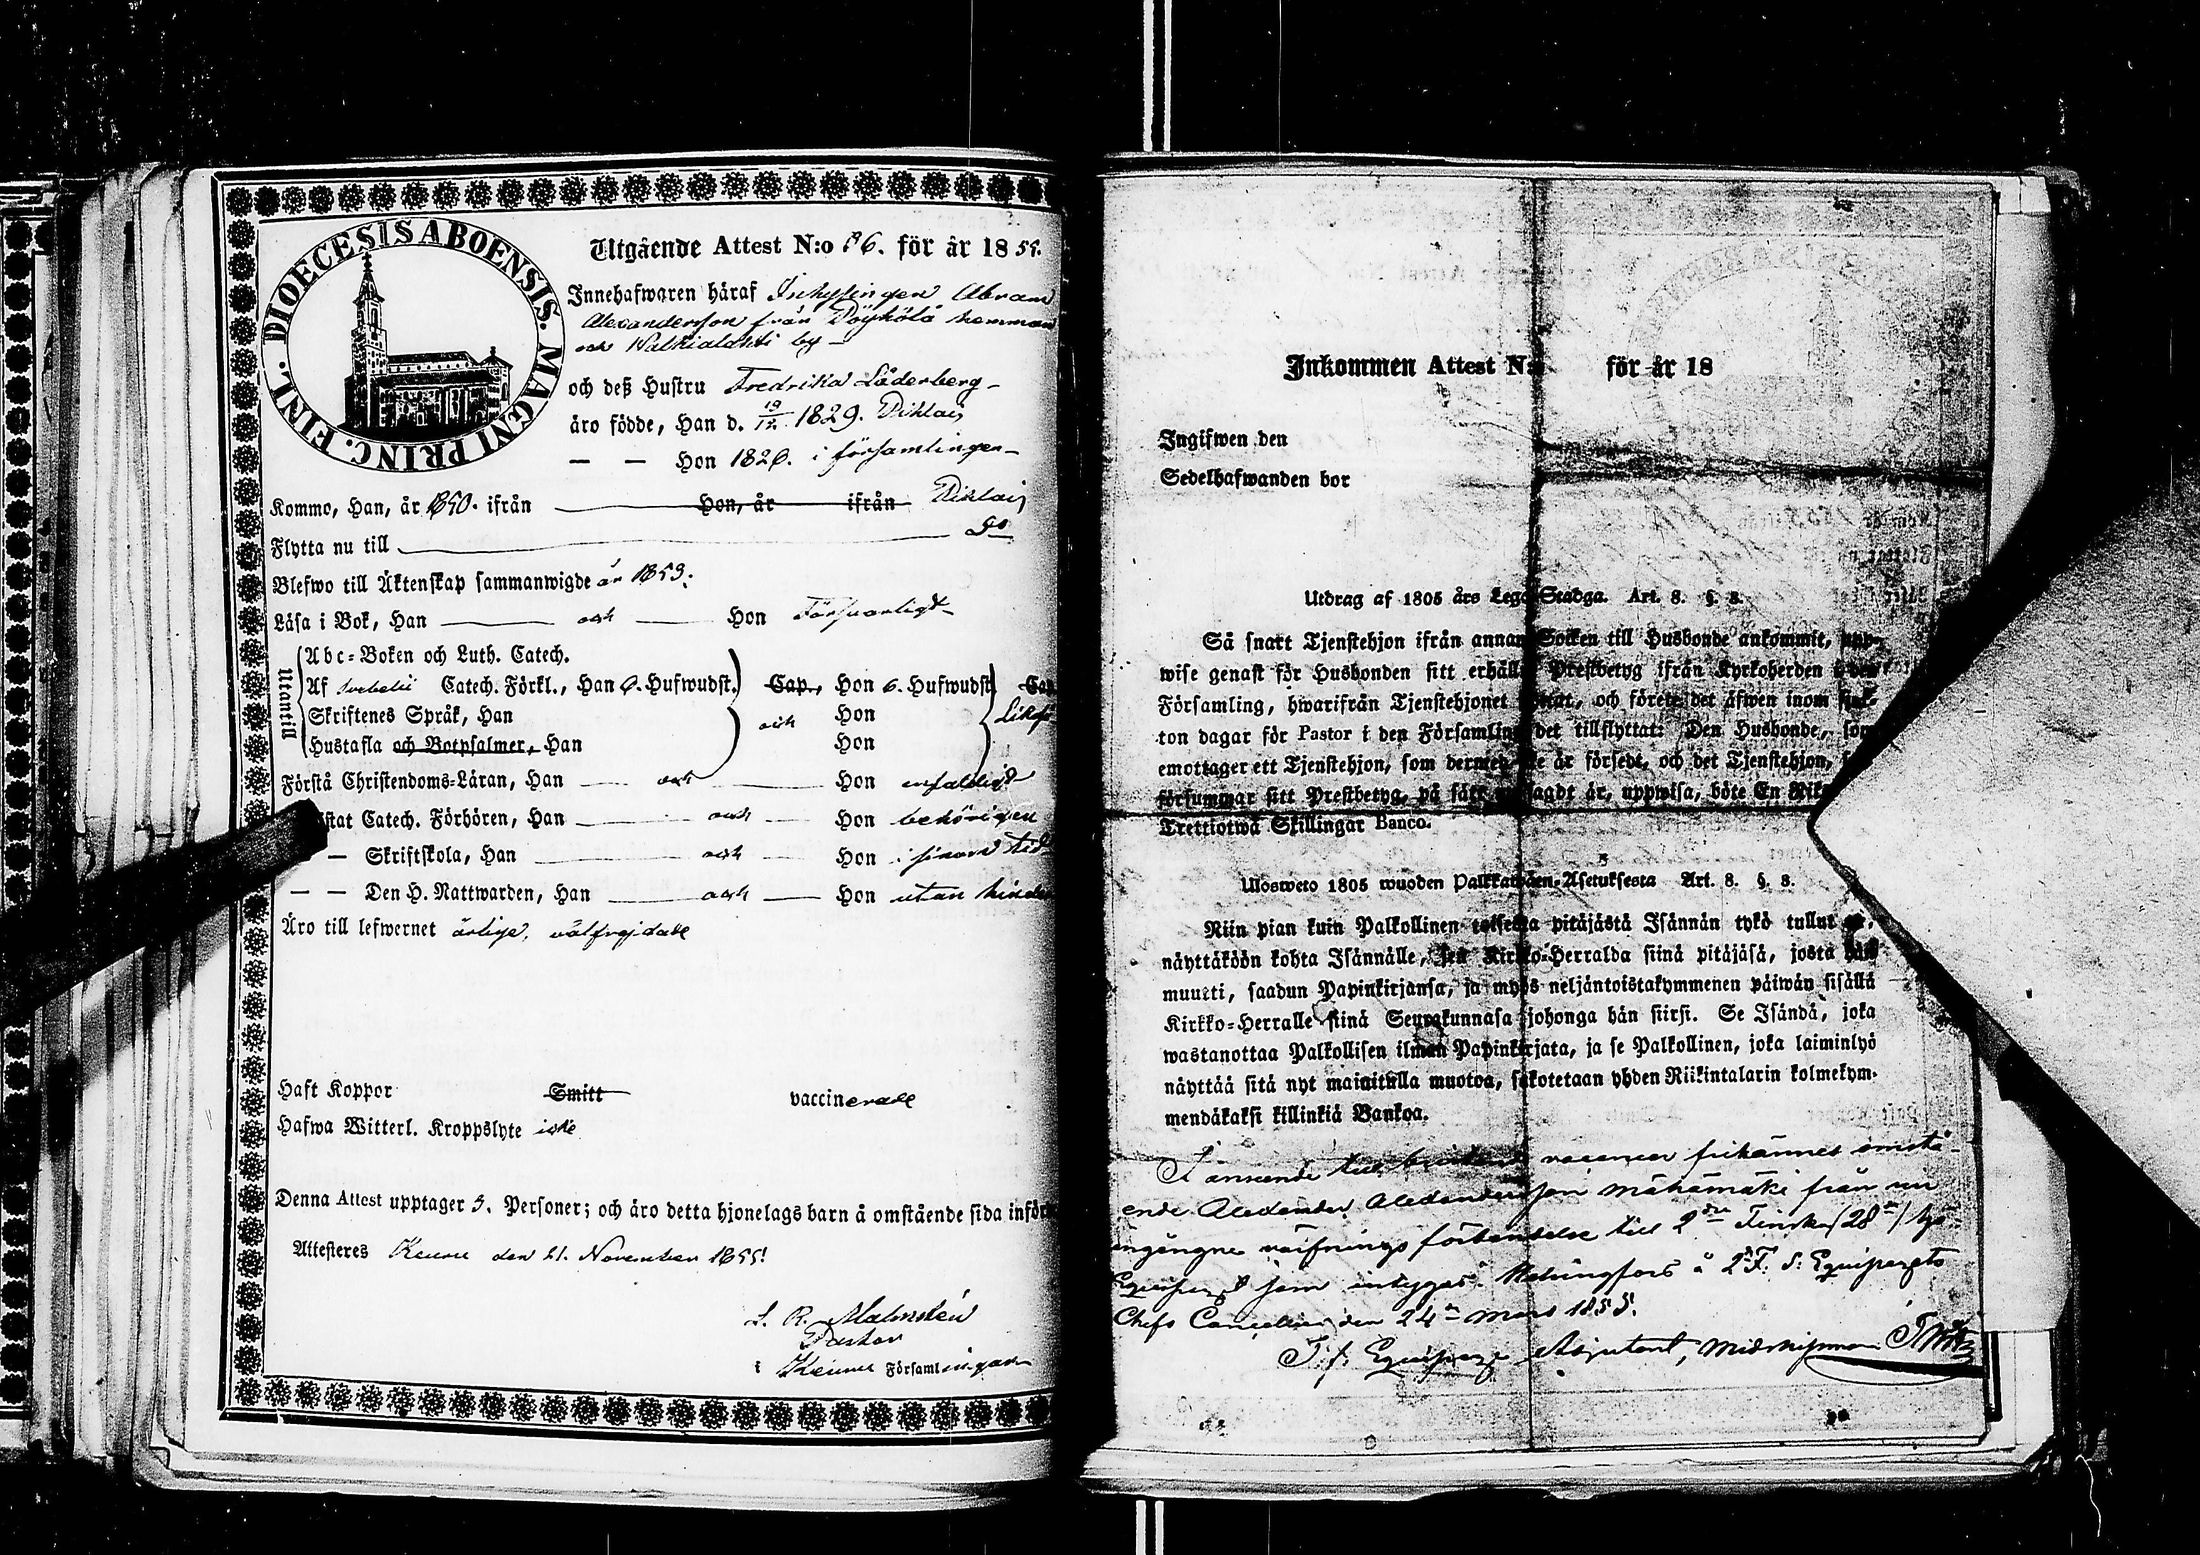 DIOECESIS ABOENSIS. MAGNI PRINC. FINL.
Utgående Attest N:o 86. för år 185
Innehafwaren häraf Inhysingen Abram
Alexandersson från Pöyhölä hemman
och Walkialahti by
och deß Hustru Fredrika Söderberg
äro födde, Han d. 19/12 1829. Pihlais
— — Hon 1826. i församlingen
Kommo, Han, år 1850. ifrån Hon, år ifrån Pihlais
Flytta nu till do
Blefwo till Äktenskap sammanwigde år 1853.
Läsa i Bok, Han och Hon försvarligt
Utantill
Abc-Boken och Luth. Catech.
Af Svebelii Catech. Förkl., Han 6. Hufwudst. Cap., Hon 6. Hufwudst. Cap
Skriftenes Språk, Han och Hon likaså
Hustafla och Botpsalmer, Han Hon
Förstå Christendoms-Läran, Han och Hon enfaldigt
stat Catech. Förhören, Han och Hon behörigen
— Skriftskola, Han och Hon i sinom tid
— — Den H. Nattwarden, Han och Hon utan hinder
Äro till lefwernet ärlige, välfrejdade
Haft Koppor Smitt vaccinerade
Hafwa Witterl. Kroppslyte icke
Denna Attest upptager 5. Personer; och äro detta hjonelags barn å omstående sida inför
Attesteres Keuru den 21. November 1855.
Malmstén
Pastor
i Keuru Församlingar
Inkommen Attest N:o för år 18
Ingifwen den
Sedelhafwanden bor
Utdrag af 1805 års Lego-Stadga. Art. 8. §. 8.
Så snart Tjenstehjon ifrån annan Socken till Husbonde ankommit, upp-
wise genast för Husbonden sitt erhållna Prestbetyg ifrån Kyrkoherden i den
Församling, hwarifrån Tjenstehjonet flyttat, och förete det äfwen inom fjor-
ton dagar för Pastor i den Församling det tillflyttat: Den Husbonde, som
emottager ett Tjenstehjon, som dermed ej är försedt, och det Tjenstehjon,
försummar sitt Prestbetyg, på sätt sagdt är, uppwisa, böte En Riks
Trettiotwå Skillingar Banco.
Ulosweto 1805 wuoden Palkkawäen-Asetuksesta Art. 8. §. 8.
Niin pian kuin Palkollinen toisesta pitäjästä Isännän tykö tullut
näyttäköön kohta Isännälle, sen Kirkko-Herralda siinä pitäjäsä, josta hän
muutti, saadun Papinkirjansa, ja myös neljäntoistakymmenen päiwän sisällä
Kirkko-Herralle siinä Seurakunnasa johonga hän siirsi. Se Isändä, joka
wastanottaa Palkollisen ilman Papinkirjata, ja se Palkollinen, joka laiminlyö
näyttää sitä nyt mainitulla muotoa, sakotetaan yhden Riikintalarin kolmekym-
mendäkaksi killinkiä Bankoa.
I anseende till bristande vacancer frikännes omstå-
ende Alexander Alexandersson Mähämäki från nu
ingångne värfnings förbindelse till 2dra Finska (28de) Sjö
Equipaget som intygas. Helsingfors å 2a F. S. Equipagets
Chefs Cancellie den 24de Mars 1855.
T. f. Equipage Adjutant, Midshipman